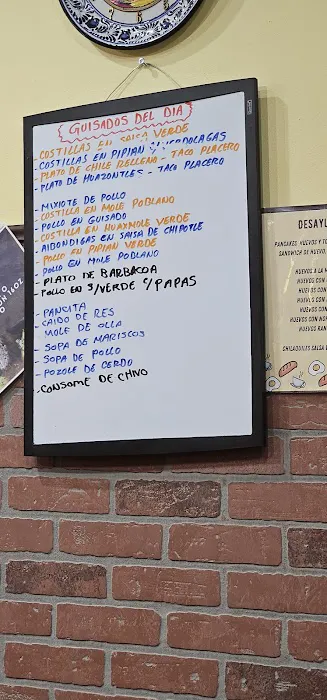 GUISADOS DEL DIA
- COSTILLAS EN SALSA VERDE
- COSTILLAS EN PIPIAN V/VERDOLAGAS
- PLATO DE CHILE RELLENO - TACO PLACERO
- PLATO DE HUAZONTLES - TACO PLACERO
- MIXIOTE DE POLLO
- COSTILLA EN MOLE POBLANO
- POLLO EN GUISADO
- COSTILLA EN HUAXMOLE VERDE
- ALBONDIGAS EN SALSA DE CHIPOTLE
- POLLO EN PIPIAN VERDE
- POLLO EN MOLE POBLANO
- PLATO DE BARBACOA
- POLLO EN S/VERDE C/PAPAS
- PANCITA
- CALDO DE RES
- MOLE DE OLLA
- SOPA DE MARISCOS
- SOPA DE POLLO
- POZOLE DE CERDO
- CONSOME DE CHIVO
DESAY
PANCAKES, HUEVOS Y TO
SANDWICH DE HUEVO,
HUEVOS A LA
HUEVOS CON
HUEVOS CON
HUEVOS CON
HUEVOS CO
HUEVOS CON
HUEVOS RAN
CHILAQUILES SALSA